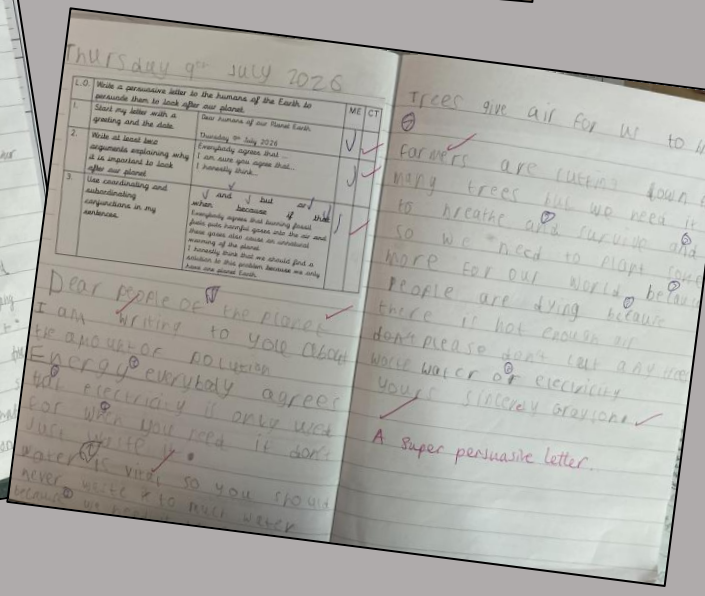 Thursday 9th July 2026
L.O. Write a persuasive letter to the humans of the Earth to persuade them to look after our planet.
ME CT
1. Start my letter with a greeting and the date.
Dear humans of our Planet Earth
Thursday 9th July 2026
2. Write at least two arguments explaining why it is important to look after our planet
Everybody agrees that...
I am sure you agree that...
I honestly think...
3. Use coordinating and subordinating conjunctions in my sentences.
and but or
when because if that
Everybody agrees that burning fossil fuels puts harmful gases into the air and these gases also cause an unnatural warming of the planet.
I honestly think that we should find a solution to this problem because we only have one planet Earth.
Dear people of the planet
I am writing to you about
the amount of polution
Energy everybody agrees
that electricity is only
for when you need it don't
Just
water is vital so you should
never to much water
because we
Trees give air for us to
Farmers are cutting down
many trees but we need it
to breathe and survive and
so we need to plant some
more for our world
People are dying because
there is not enough air
don't please don't cut any
water or electricity
yours sincerly
A super persuasive letter.